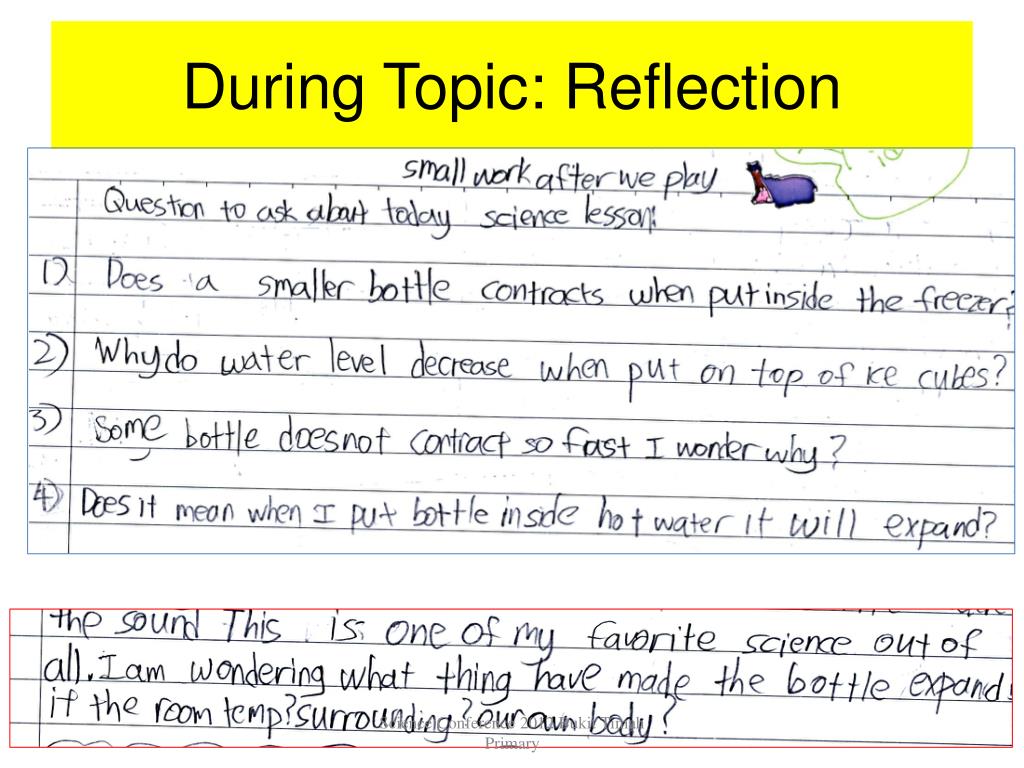 During Topic: Reflection
small work after we play
Question to ask about today science lesson:
1) Does a smaller bottle contracts when put inside the freezer?
2) Why do water level decrease when put on top of ice cubes?
3) Some bottle does not contract so fast I wonder why?
4) Does it mean when I put bottle inside hot water it will expand?
the sound This is one of my favorite science out of
all. I am wondering what thing have made the bottle expand
it the room temp? surrounding? our own body?
Science Conference 2012 Bukit Timah
Primary